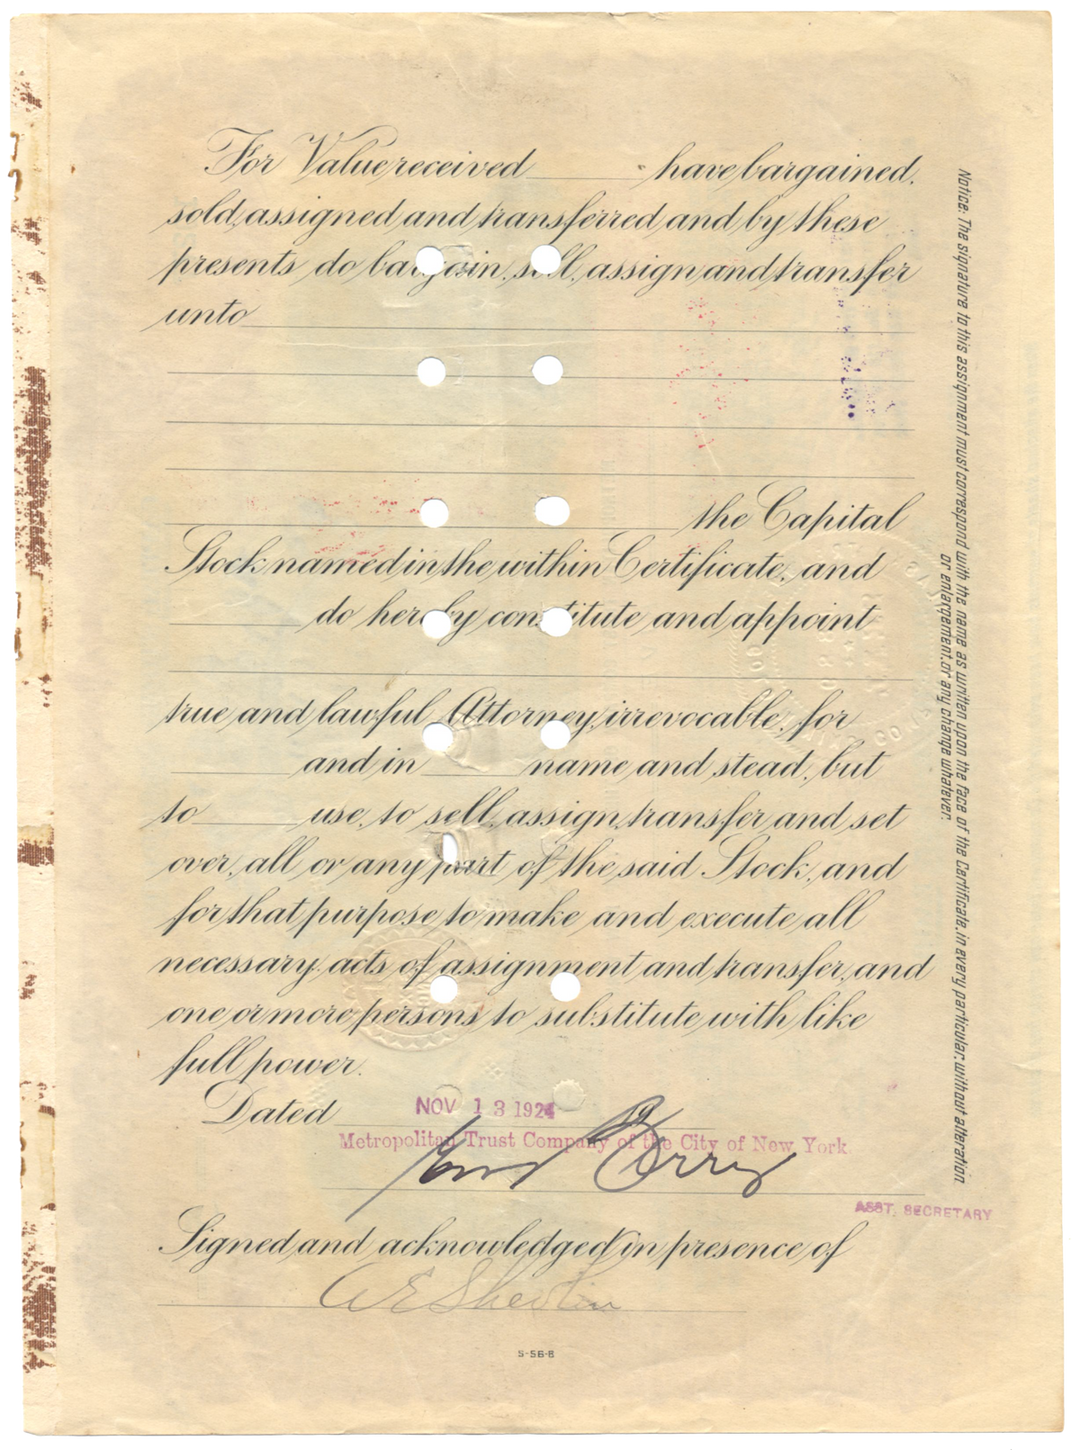 For Value received have bargained,
sold, assigned and transferred and by these
presents do bargain, sell, assign and transfer
unto
the Capital
Stock named in the within Certificate, and
do hereby constitute and appoint
true and lawful Attorney, irrevocable, for
and in name and stead, but
to use, to sell, assign, transfer and set
over, all or any part of the said Stock, and
for that purpose to make and execute all
necessary acts of assignment and transfer, and
one or more persons to substitute with like
full power.
Dated NOV 13 1924
Metropolitan Trust Company of the City of New York
ASST. SECRETARY
Signed and acknowledged in presence of
5-56-8
Notice: The signature to this assignment must correspond with the name as written upon the face of the Certificate, in every particular, without alteration
or enlargement, or any change whatever.